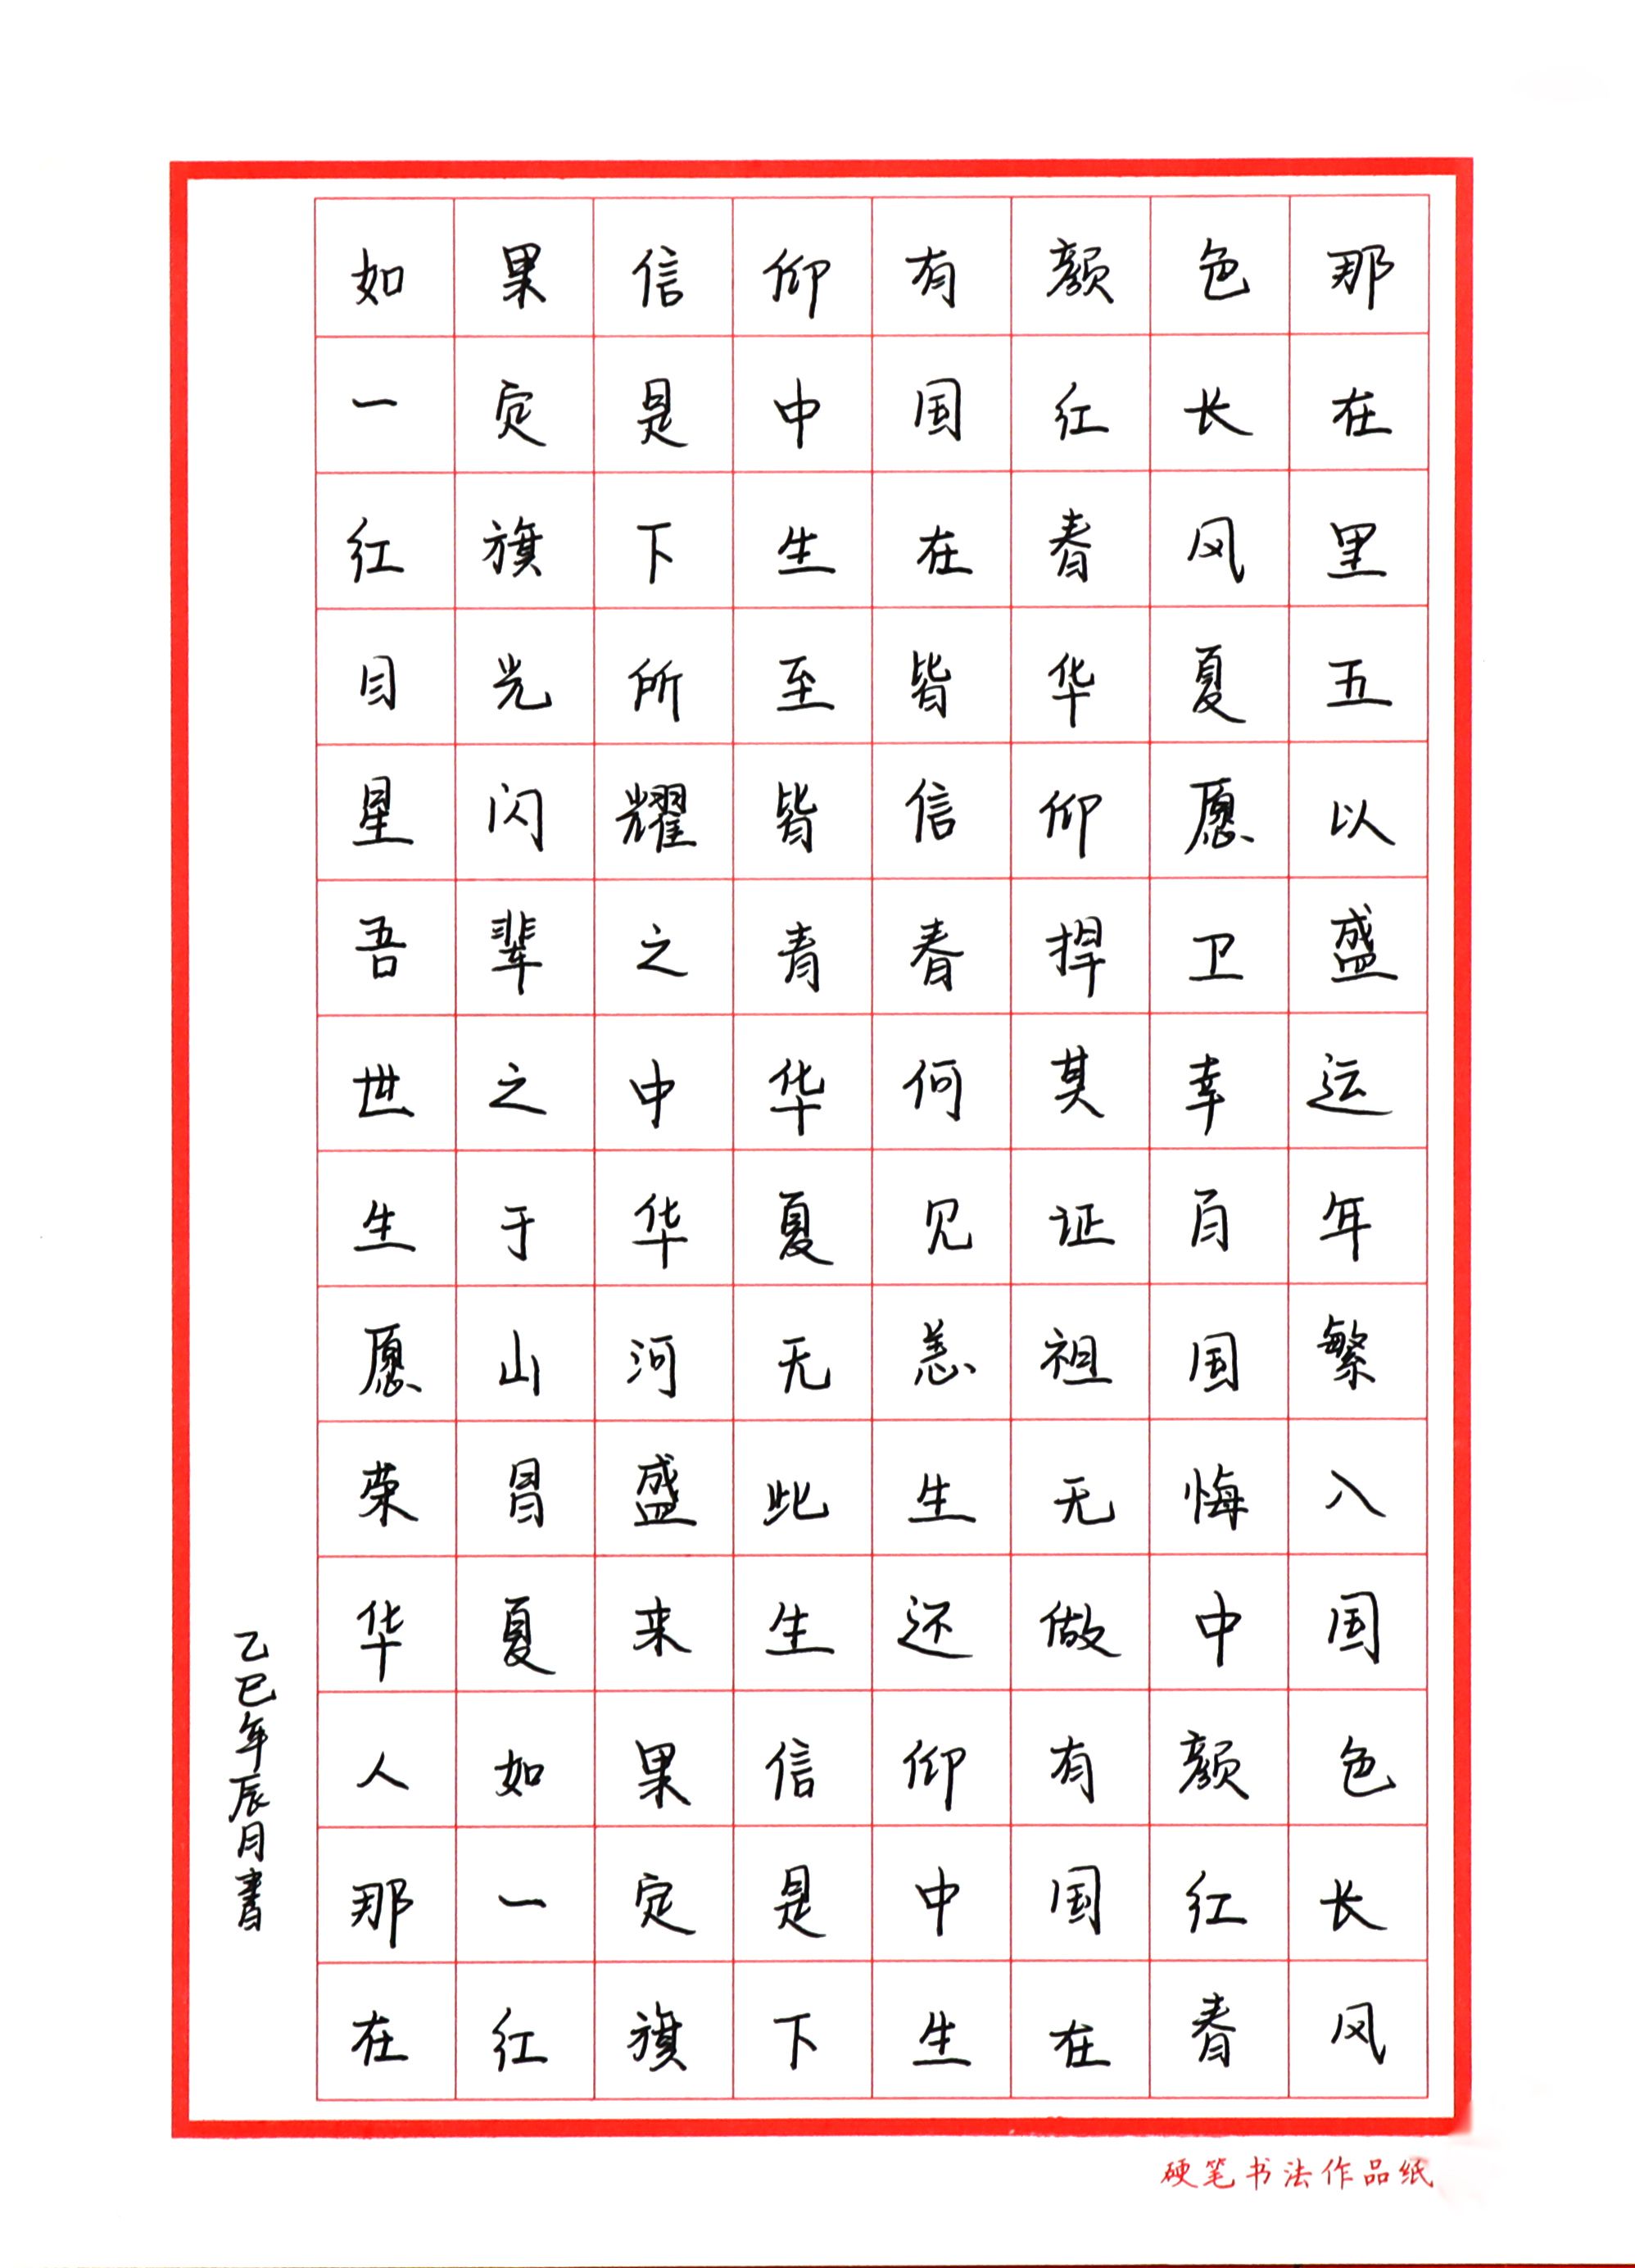 如果信仰有颜色那
一定是中国红长在
红旗下生在春风里
目光所至皆华夏五
星闪耀皆信仰愿以
吾辈之青春捍卫盛
世之中华何其幸运
生于华夏见证百年
愿山河无恙祖国繁
荣昌盛此生无悔入
华夏来生还做中国
人如果信仰有颜色
那一定是中国红长
在红旗下生在春风
乙巳年辰月书
硬笔书法作品纸